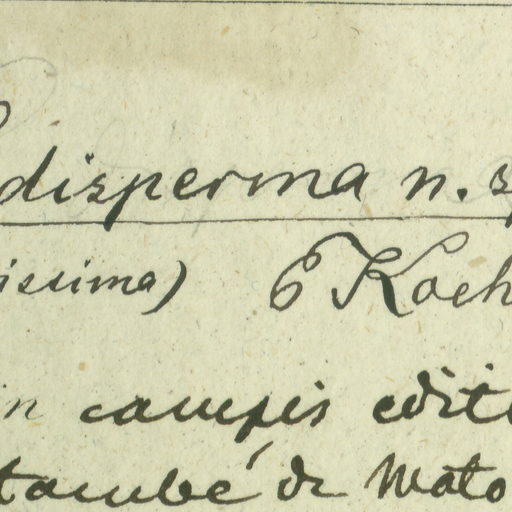 disperma n. sp
issima) E Koeh
in campis edit
també de Mato